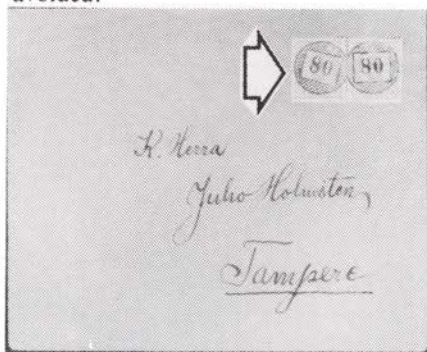 80 80
K. Herra
Julho Holmsten,
Tampere